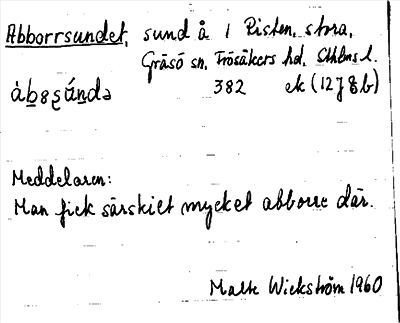 Abborrsundet, sund å l Risten, stora,
Gräsö sn, Frösåkers hd, Sthlms l.
382 ek (12 J 8 b)
Meddelaren:
Man fick särskilt mycket abborre där.
Malte Wickström 1960